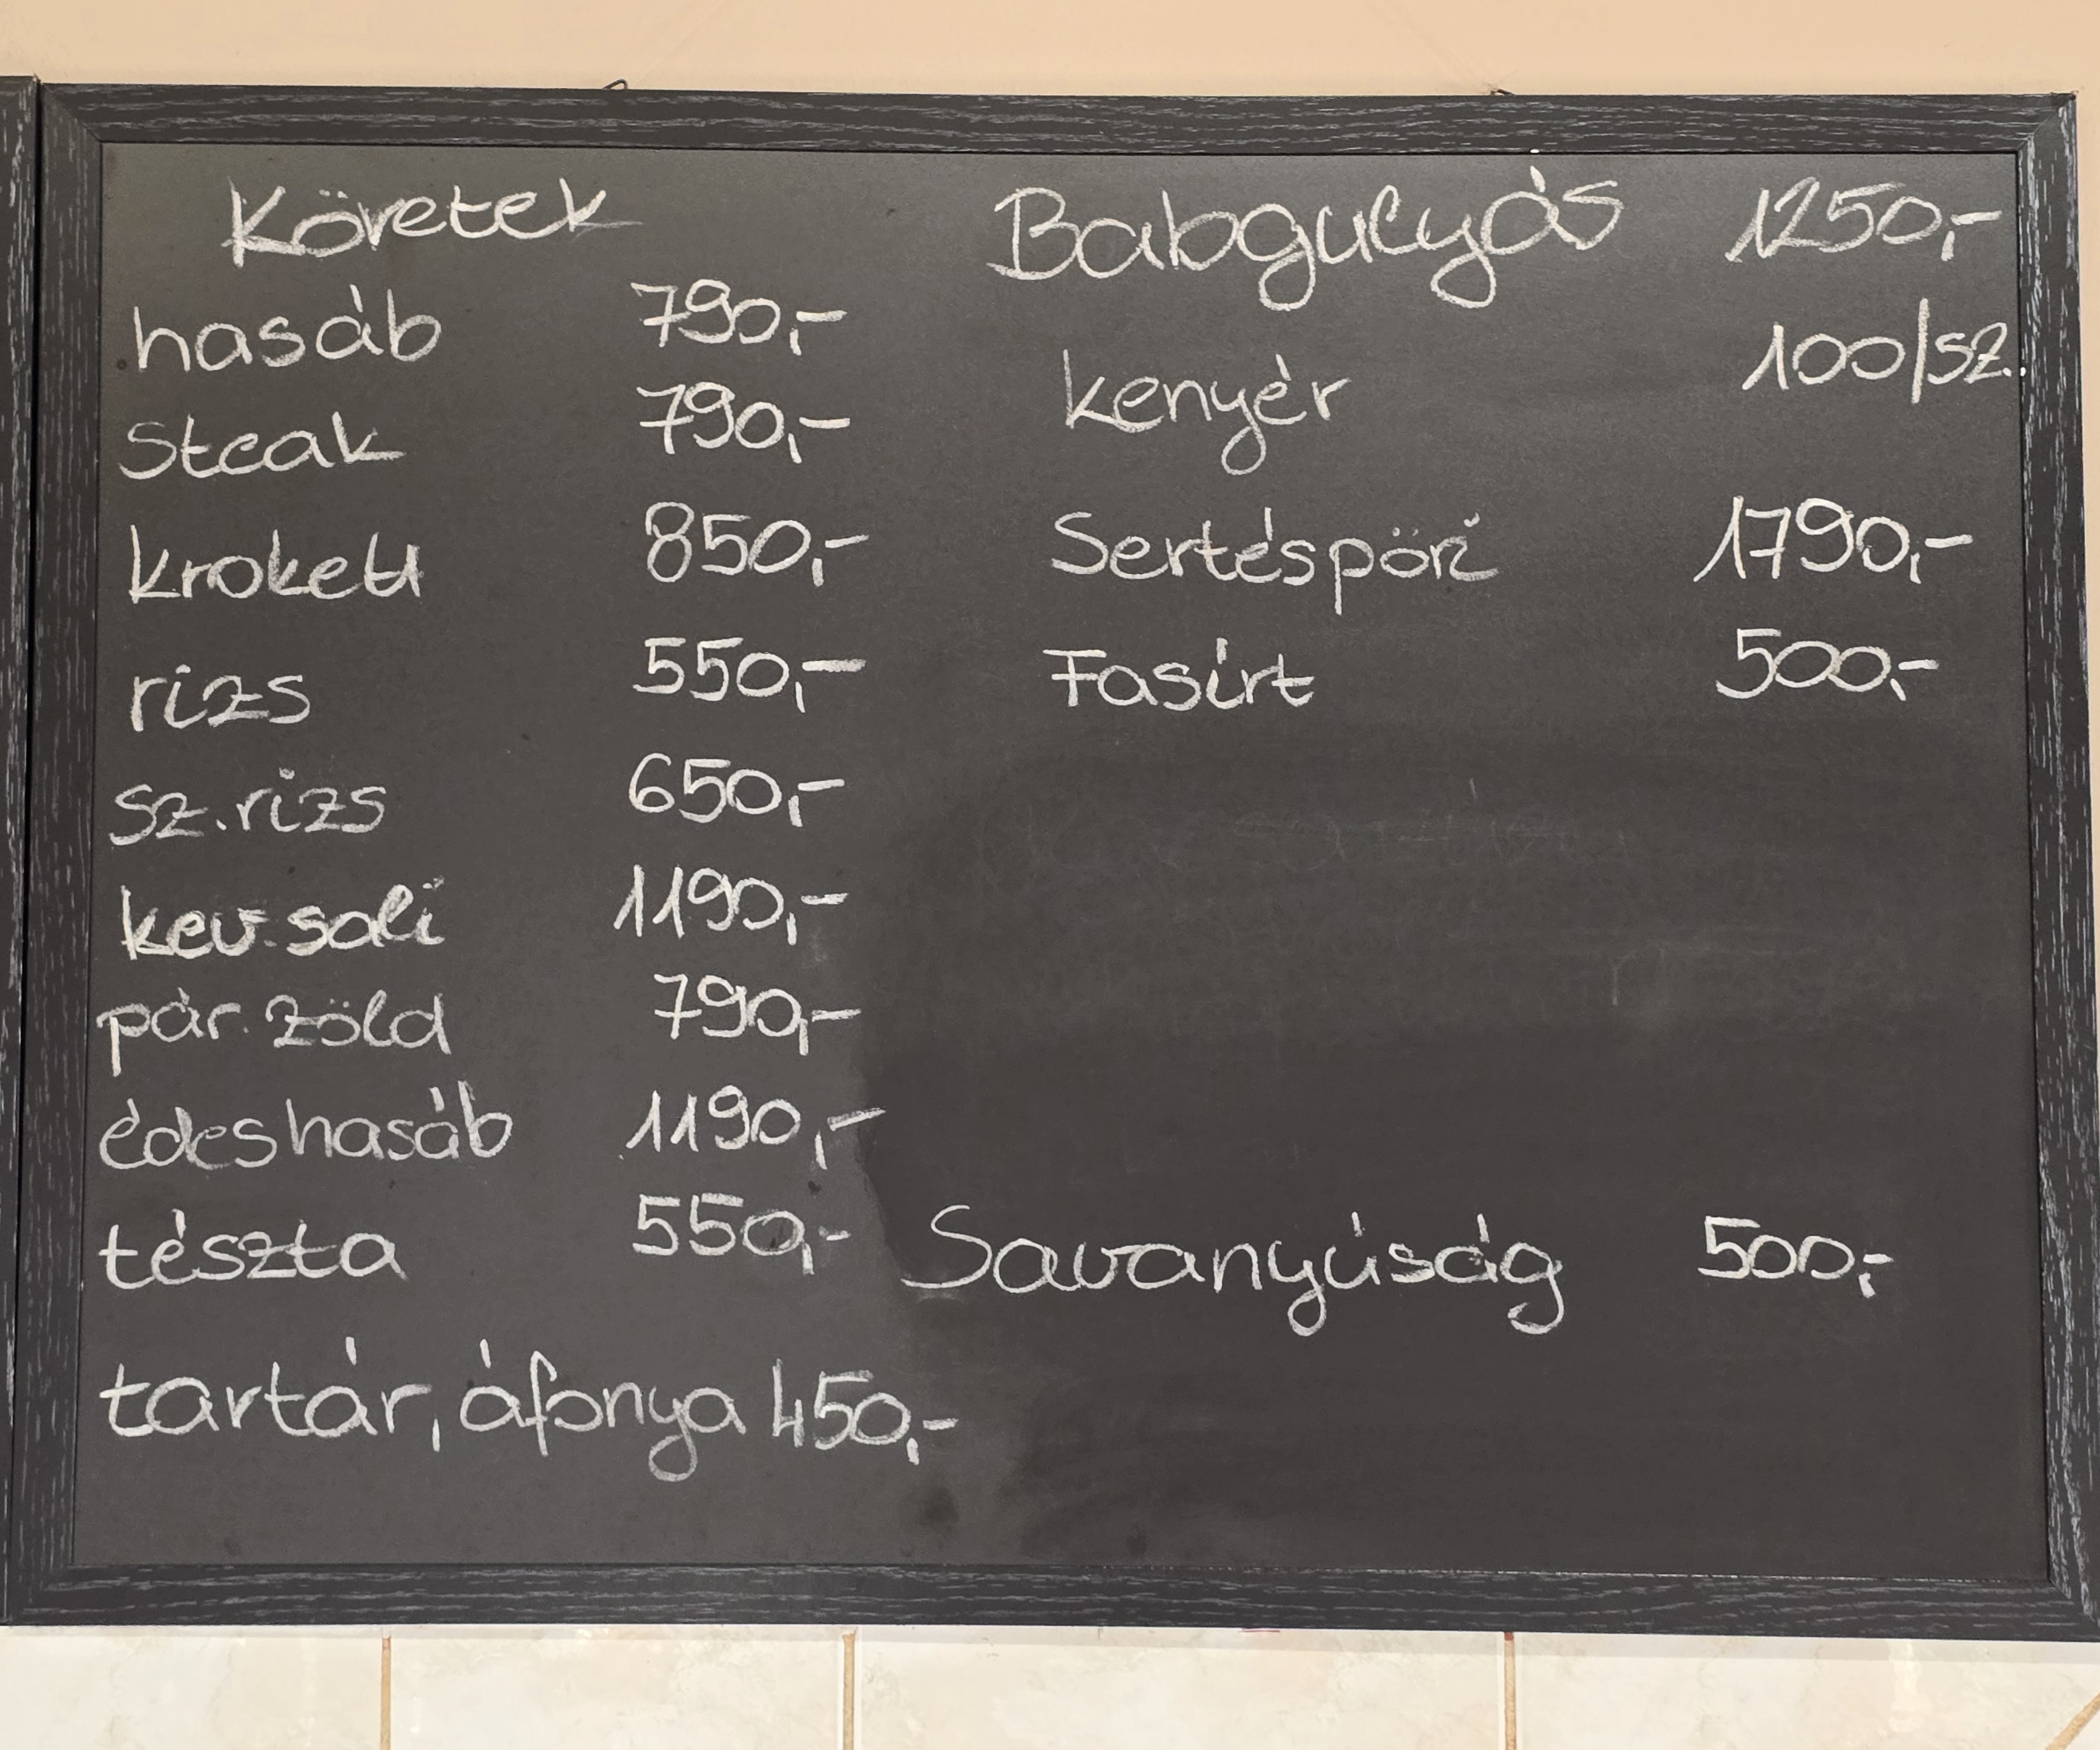 Köretek
hasáb 790,-
Steak 790,-
krokett 850,-
rizs 550,-
sz.rizs 650,-
kev.sali 1190,-
pár.zöld 790,-
édeshasáb 1190,-
tészta 550,-
tartár, áfonya 450,-
Babgulyás 1250,-
kenyér 100/sz.
Sertéspöri 1790,-
Fasírt 500,-
Savanyúság 500,-